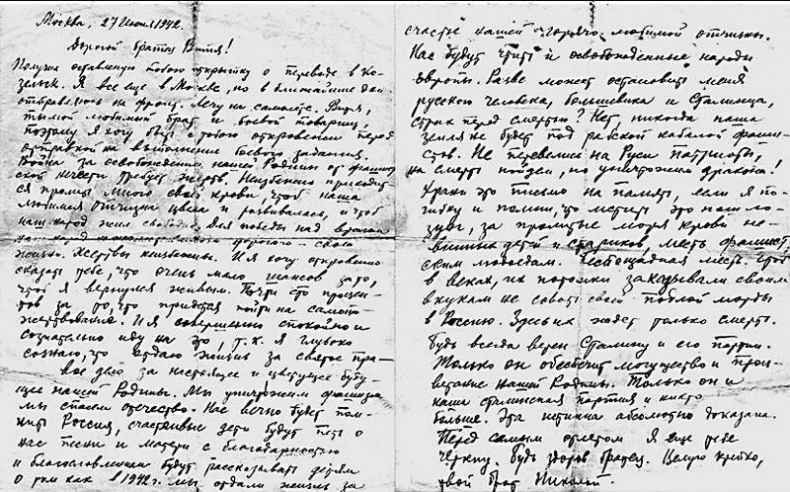 Москва, 27 июля 1942.
Дорогой братец Витя!
Получил оставленную тобою открытку о переводе в Ко-
зельск. Я все еще в Москве, но в ближайшие дни
отправляюсь на фронт. Лечу на самолете. Витя,
ты мой любимый брат и боевой товарищ,
поэтому я хочу быть с тобою откровенен перед
отправкой на выполнение боевого задания.
Война за освобождение нашей Родины от фашист-
ской нечисти требует жертв. Неизбежно приходит-
ся пролить много своей крови, чтоб наша
любимая отчизна цвела и развивалась, и чтоб
наш народ жил свободно. Для победы над врагом
наш народ не жалеет самого дорогого – своей
жизни. Жертвы неизбежны. И я хочу откровенно
сказать тебе, что очень мало шансов за то,
чтоб я вернулся живым. Почти сто процен-
тов за то, что придется пойти на самопо-
жертвование. И я совершенно спокойно и
сознательно иду на это, т.к. я глубоко
сознаю, что отдаю жизнь за святое пра-
вое дело за настоящее и цветущее буду-
щее нашей Родины. Мы уничтожим фашизм
мы спасем отечество. Нас вечно будет пом-
нить Россия, счастливые дети будут петь о
нас песни и матери с благодарностью
и благословением будут рассказывать детям
о том как в 1942 г. мы отдали жизнь за
счастье нашей горячо любимой отчизны.
Нас будут чтить и освобожденные народы
Европы. Разве может остановить меня
русского человека, большевика и сталинца,
страх перед смертью? Нет, никогда наша
земля не будет под рабской кабалой фаши-
стов. Не перевелись на Руси патриоты,
на смерть пойдем, но уничтожим дракона!
Храни это письмо на память, если я по-
гибну и помни, что мстить это наш ло-
зунг, за пролитые моря крови не-
винных детей и стариков, месть фашист-
ским людоедам. Беспощадная месть. Чтоб
в веках, их потомки заказывали своим
внукам не совать своей подлой морды
в Россию. Здесь их ждет только смерть.
Будь всегда верен Сталину и его партии.
Только он обеспечит могущество и проц-
ветание нашей Родины. Только он и
наша сталинская партия и никто
больше. Эта истина абсолютно доказана.
Перед самым отлетом я еще тебе
черкну. Будь здоров братец. Целую крепко,
твой брат Николай